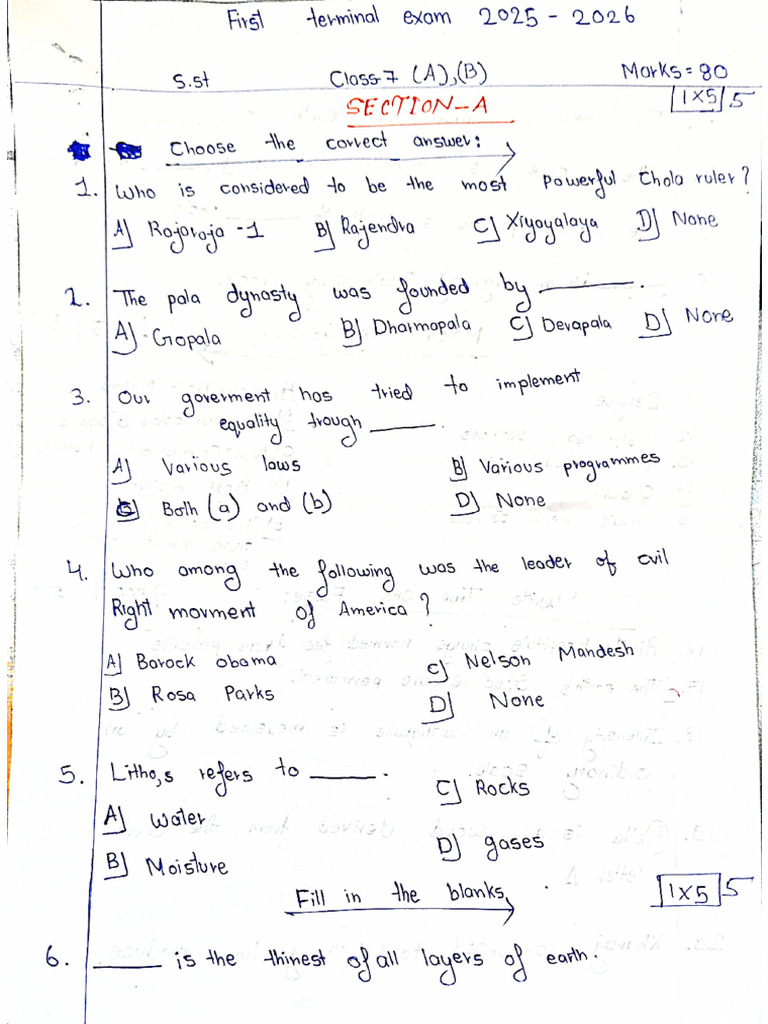 First terminal exam 2025 - 2026
S.st Class-7 (A),(B) Marks = 80
SECTION-A 1X5 5
Choose the correct answer:
1. Who is considered to be the most powerful Chola ruler?
A) Rajaraja -1 B) Rajendra C) Xiyoyalaya D) None
2. The pala dynasty was founded by ______.
A) Gopala B) Dharmapala C) Devapala D) None
3. Our goverment has tried to implement
equality trough ______.
A) Various laws B) Various programmes
C) Both (a) and (b) D) None
4. Who among the following was the leader of cvil
Right movment of America?
A) Barack obama C) Nelson Mandesh
B) Rosa Parks D) None
5. Litho,s refers to ______.
A) Water C) Rocks
B) Moisture D) gases
Fill in the blanks 1X5 5
6. ______ is the thinest of all layers of earth.